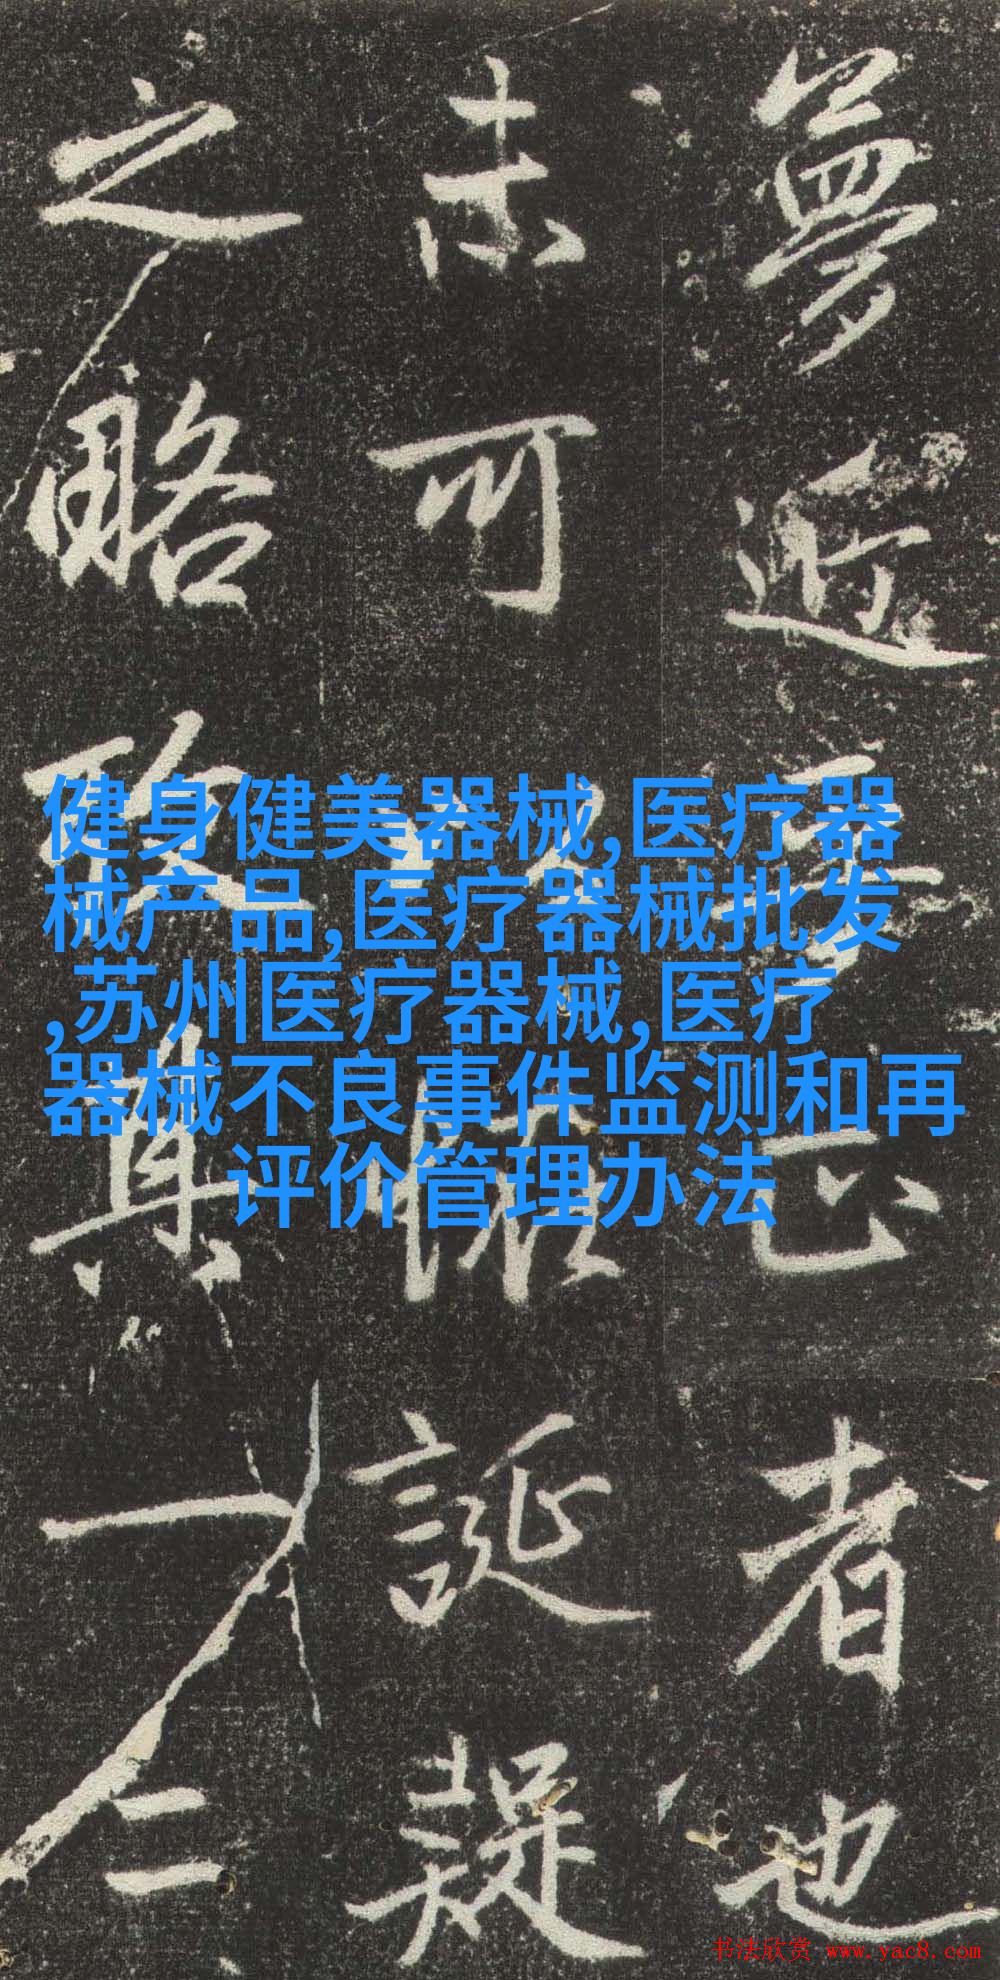 夢近正者也
未可誕疑
之略一
健身健美器械,医疗器
械产品,医疗器械批发
,苏州医疗器械,医疗
器械不良事件监测和再
评价管理办法
书法欣赏 www.yac8.com